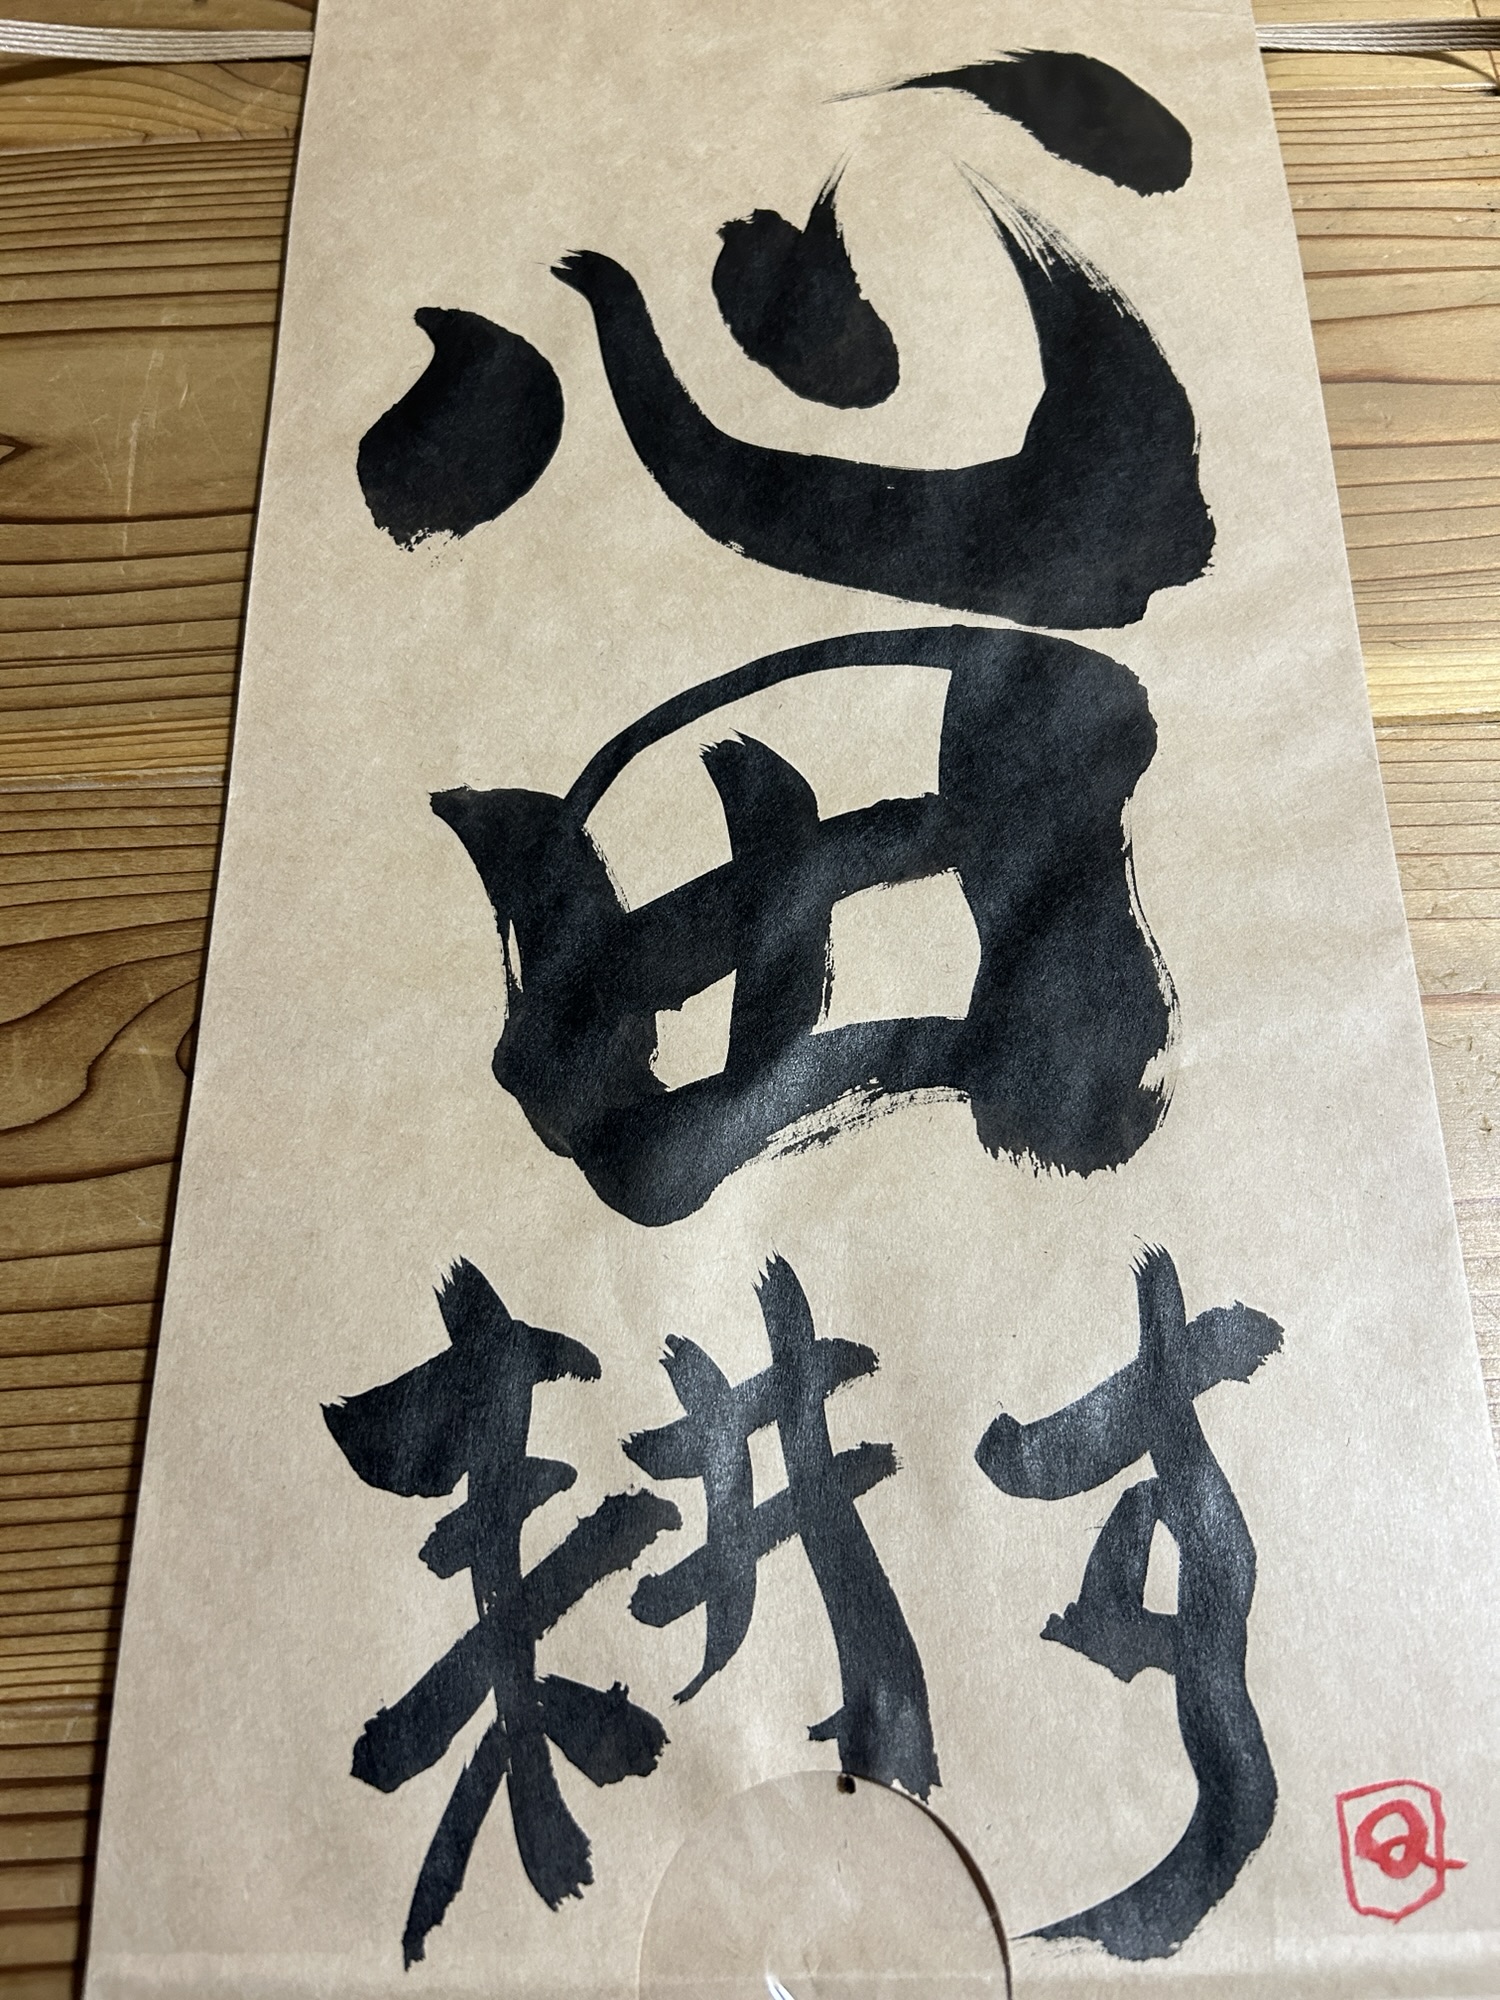 心
田
耕す